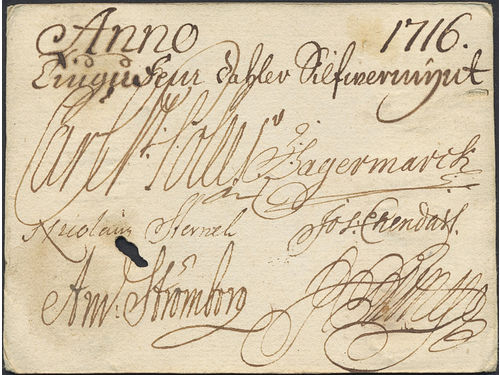 Anno 1716.
Tiugu Fem Dahler Silfwermÿnt
Carl
J: Jagermarck
Nicolaus Sternel Jos: Ehendahl.
And: Strömborg